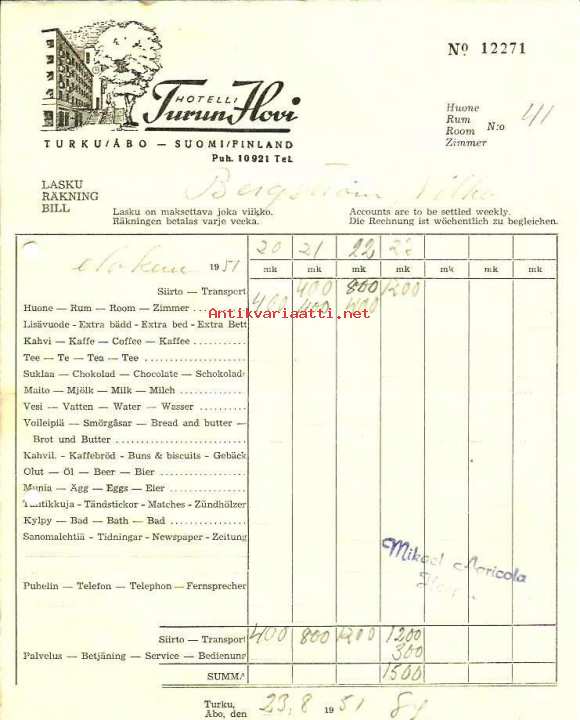 Nº 12271
HOTELLI
Turun Hovi
TURKU/ÅBO — SUOMI/FINLAND
Puh. 10921 Tel.
Huone
Rum
Room N:o 41
Zimmer
LASKU
RÄKNING
BILL
Bergström, Vilho
Lasku on maksettava joka viikko.
Räkningen betalas varje vecka.
Accounts are to be settled weekly.
Die Rechnung ist wöchentlich zu begleichen.
elokuu 1951 20 21 22 22
mk mk mk mk mk mk mk
Siirto — Transport 400 800 1200
Huone — Rum — Room — Zimmer 400 400 400
Antikvariaatti.net
Lisävuode - Extra bädd - Extra bed - Extra Bett
Kahvi — Kaffe — Coffee — Kaffee
Tee — Te — Tea — Tee
Suklaa — Chokolad — Chocolate — Schokolade
Maito — Mjölk — Milk — Milch
Vesi — Vatten — Water — Wasser
Voileipiä — Smörgåsar — Bread and butter —
Brot und Butter
Kahvil. - Kaffebröd - Buns & biscuits - Gebäck
Olut — Öl — Beer — Bier
Munia — Ägg — Eggs — Eier
Tulitikkuja - Tändstickor - Matches - Zündhölzer
Kylpy — Bad — Bath — Bad
Sanomalehtiä - Tidningar - Newspaper - Zeitung
Mikael Agricola
Puhelin — Telefon — Telephon — Fernsprecher
Siirto — Transport 400 800 1200 1200
Palvelus — Betjäning — Service — Bedienung 300
SUMMA 1500
Turku,
Åbo, den 23.8 1951